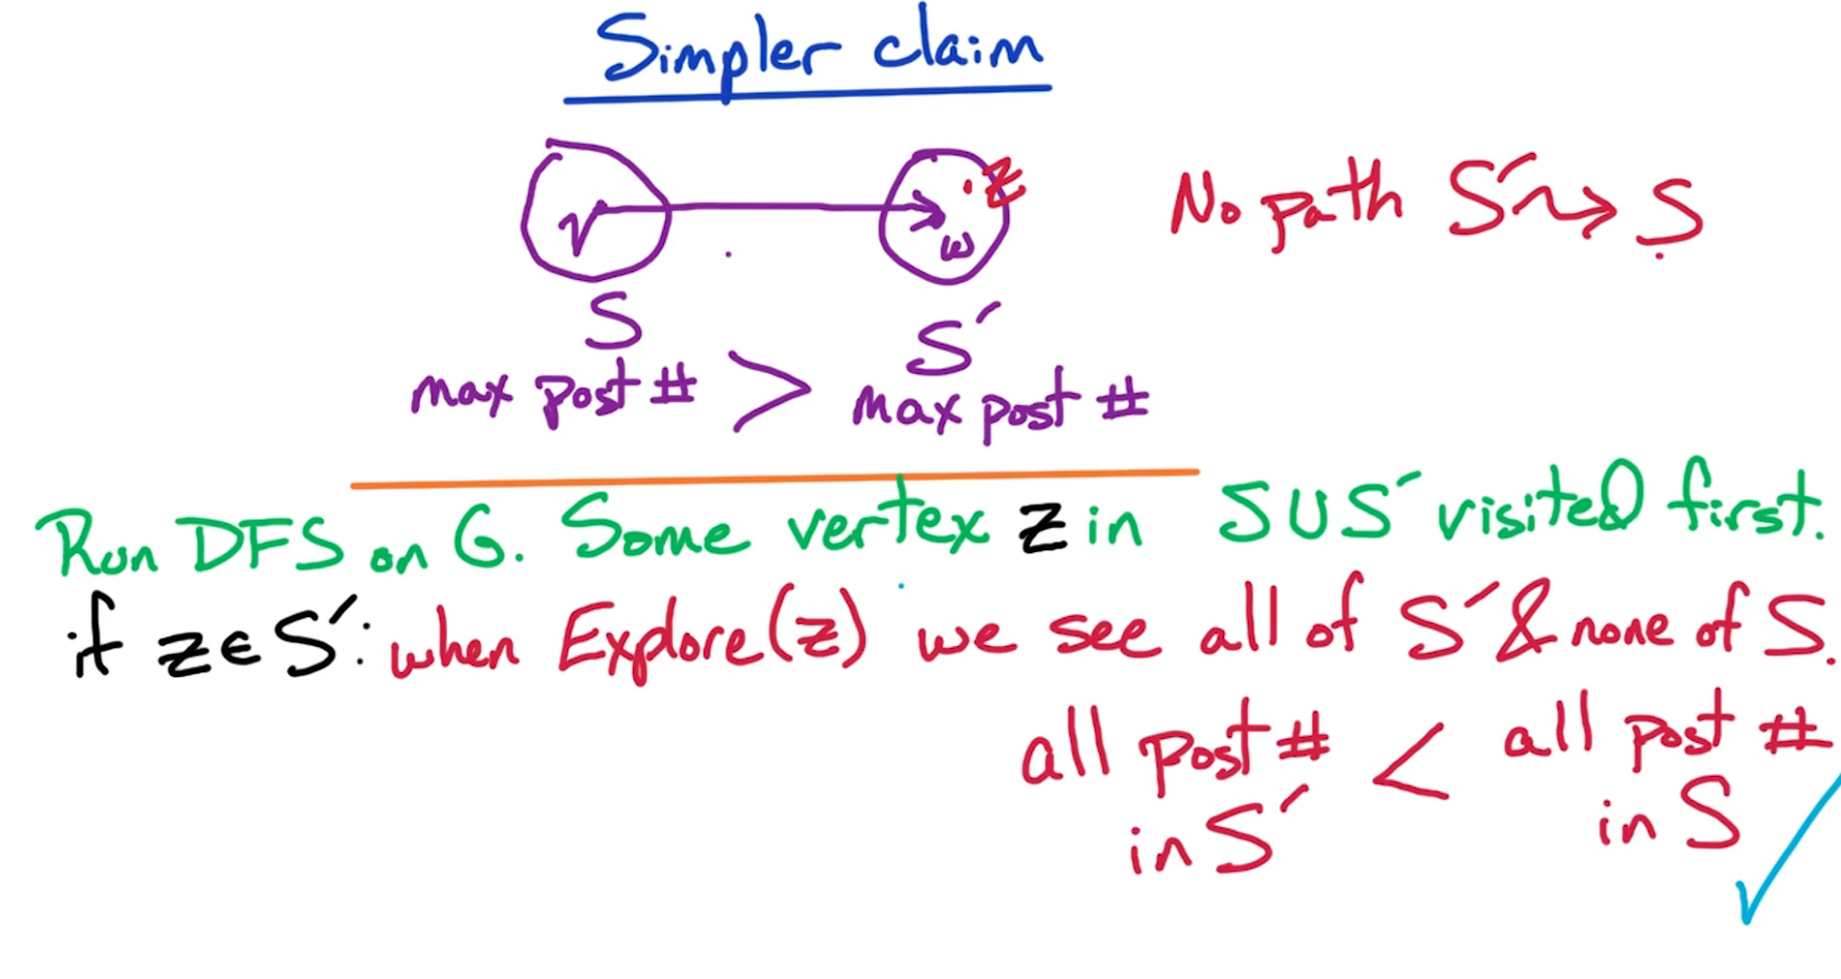 Simpler claim
v w . z
No path S' ⇝ S
S S'
max post # > max post #
Run DFS on G. Some vertex z in S∪S' visited first.
if z∈S': when Explore(z) we see all of S' & none of S.
all post # < all post #
in S' in S ✓